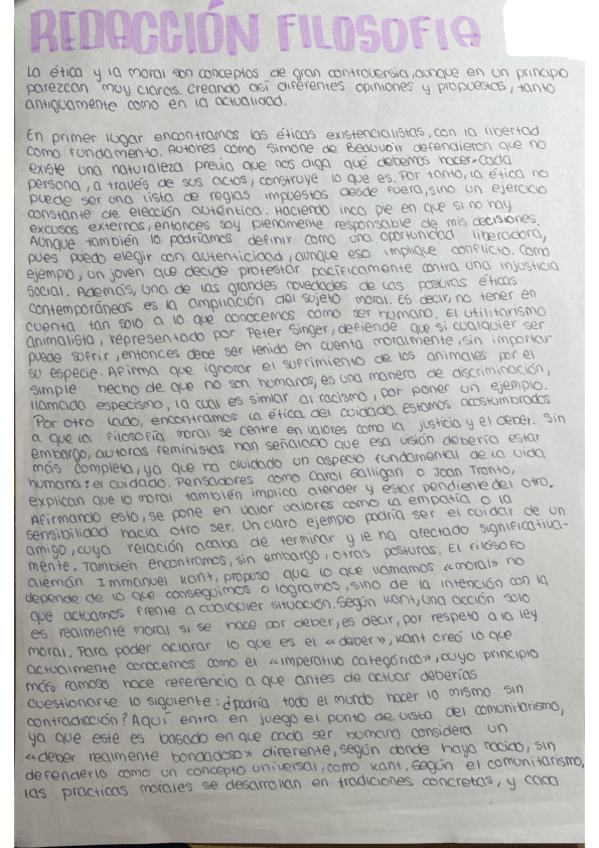 REDACCIÓN FILOSOFIA
La ética y la moral son conceptos de gran controversia, aunque en un principio
parezcan muy claros. Creando así diferentes opiniones y propuestas, tanto
antiguamente como en la actualidad.
En primer lugar encontramos las éticas existencialistas, con la libertad
como fundamento. Autores como Simone de Beauvoir defendieron que no
existe una naturaleza previa que nos diga qué debemos hacer. Cada
persona, a través de sus actos, construye lo que es. Por tanto, la ética no
puede ser una lista de reglas impuestas desde fuera, sino un ejercicio
constante de elección auténtica. Haciendo inca pie en que si no hay
excusas externas, entonces soy plenamente responsable de mis decisiones.
Aunque también lo podríamos definir como una oportunidad liberadora,
pues puedo elegir con autenticidad, aunque eso implique conflicto. Como
ejemplo, un joven que decide protestar pacíficamente contra una injusticia
social. Además, una de las grandes novedades de las posturas éticas
contemporáneas es la ampliación del sujeto moral. Es decir, no tener en
cuenta tan solo a lo que conocemos como ser humano. El utilitarismo
animalista, representado por Peter Singer, defiende que si cualquier ser
puede sufrir, entonces debe ser tenido en cuenta moralmente, sin importar
su especie. Afirma que ignorar el sufrimiento de los animales por el
simple hecho de que no son humanos, es una manera de discriminación,
llamada especismo, la cual es similar al racismo, por poner un ejemplo.
Por otro lado, encontramos la ética del cuidado. Estamos acostumbrados
a que la filosofía moral se centre en valores como la justicia y el deber. Sin
embargo, autoras feministas han señalado que esa visión debería estar
más completa, ya que ha olvidado un aspecto fundamental de la vida
humana: el cuidado. Pensadores como Carol Galligan o Joan Tronto,
explican que lo moral también implica atender y estar pendiente del otro.
Afirmando esto, se pone en valor valores como la empatía o la
sensibilidad hacia otro ser. Un claro ejemplo podría ser el cuidar de un
amigo, cuya relación acaba de terminar y le ha afectado significativa-
mente. También encontramos, sin embargo, otras posturas. El filósofo
alemán Immanuel Kant, propuso que lo que llamamos «moral» no
depende de lo que conseguimos o logramos, sino de la intención con la
que actuamos frente a cualquier situación. Según Kant, una acción solo
es realmente moral si se hace por deber, es decir, por respeto a la ley
moral. Para poder aclarar lo que es el «deber», Kant creó lo que
actualmente conocemos como el «imperativo categórico», cuyo principio
más famoso hace referencia a que antes de actuar deberías
cuestionarte lo siguiente: ¿podría todo el mundo hacer lo mismo sin
contradicción? Aquí entra en juego el punto de vista del comunitarismo,
ya que este es basado en que cada ser humano considera un
«deber realmente bondadoso» diferente, según donde haya nacido, sin
defenderlo como un concepto universal, como Kant. Según el comunitarismo,
las prácticas morales se desarrollan en tradiciones concretas, y cada